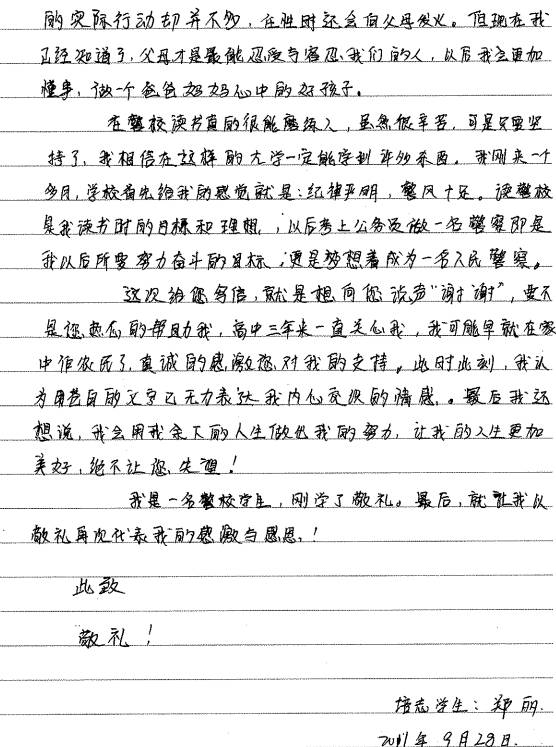 的实际行动却并不多，任性时还会向父母发火。但现在我
已经知道了，父母才是最能忍受与容忍我们的人，以后我会更加
懂事，做一个爸爸妈妈心中的好孩子。
在警校读书真的很能磨练人，虽然很辛苦，可是只要坚
持了，我相信在这样的大学一定能学到许多东西。我刚来一个
多月，学校首先给我的感觉就是：纪律严明，警风十足。读警校
是我读书时的目标和理想，以后考上公务员做一名警察即是
我以后所要努力奋斗的目标，更是梦想着成为一名人民警察。
这次给您写信，就是想向您说声“谢谢”，要不
是您热心的帮助我，高中三年来一直关心我，我可能早就在家
中作农民了，真诚的感激您对我的支持。此时此刻，我认
为用苍白的文字已无力表达我内心交织的情感。最后我还
想说，我会用我余下的人生做出我的努力，让我的人生更加
美好，绝不让您失望！
我是一名警校学生，刚学了敬礼。最后，就让我以
敬礼再次代表我的感激与感恩！
此致
敬礼！
培志学生：郑丽
2011年9月28日.